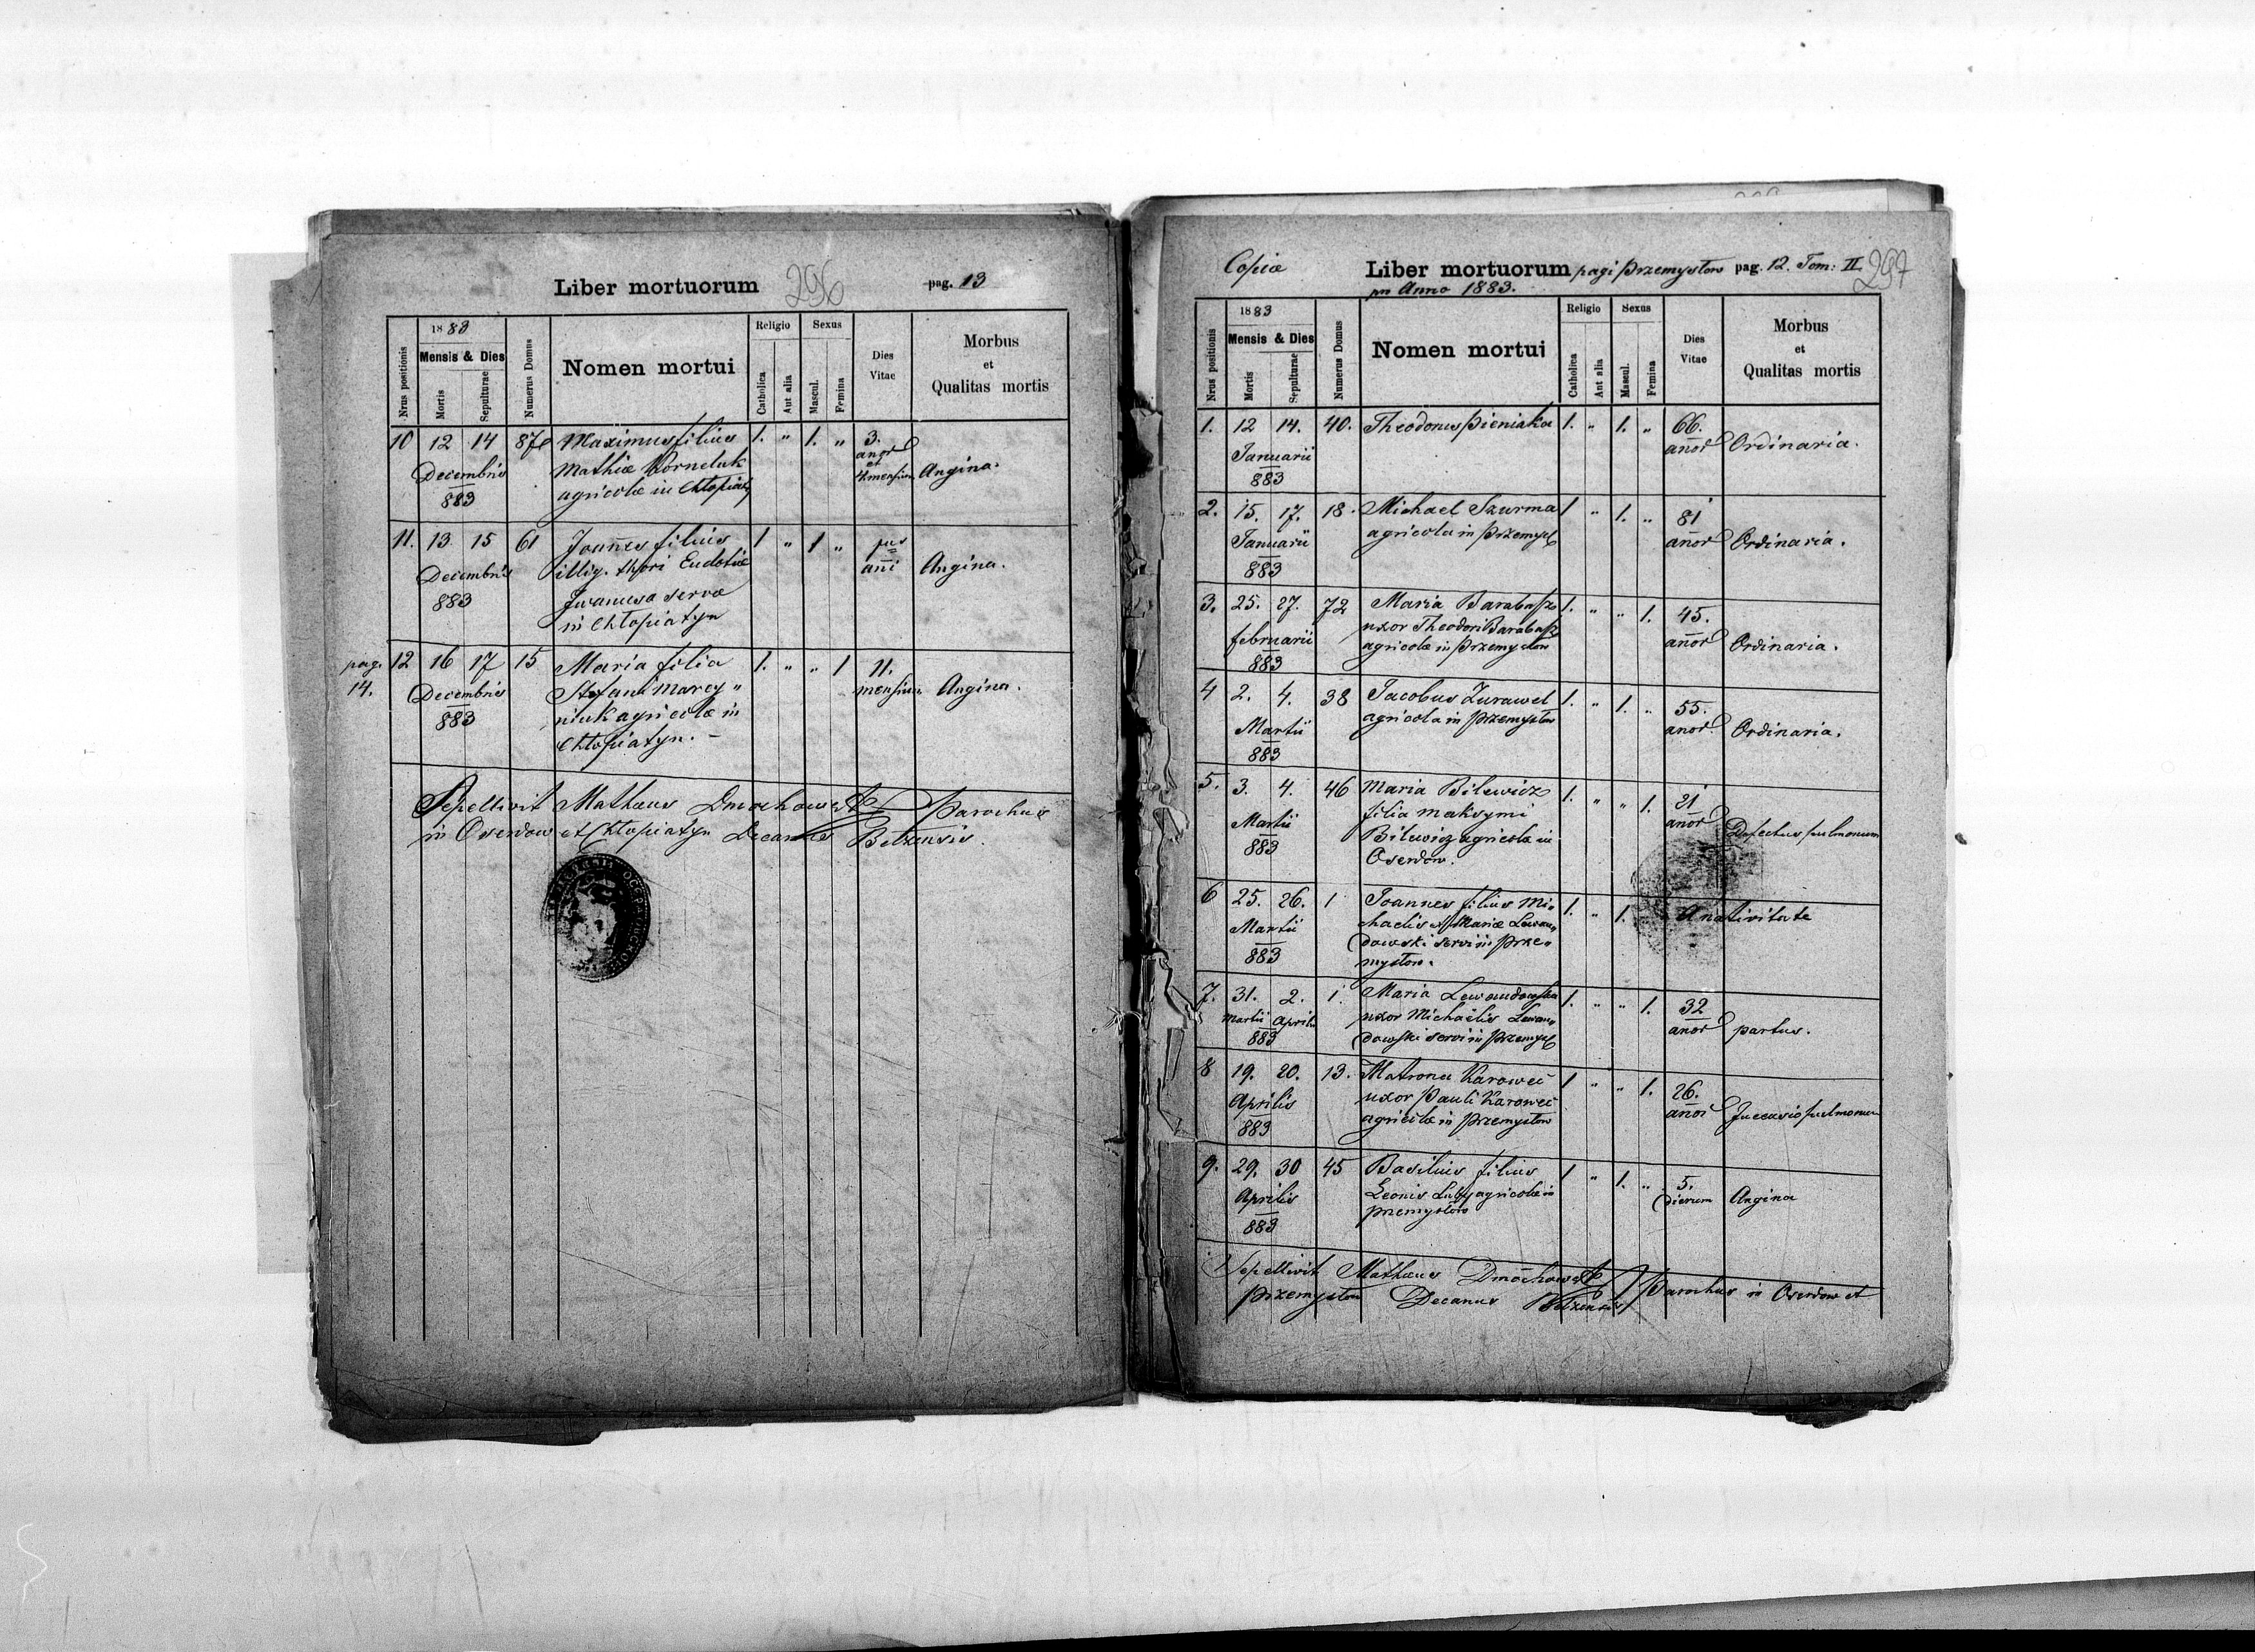 Liber mortuorum 296 pag. 13
Nrus positionis
1883
Mensis & Dies
Mortis
Sepulturae
Numerus Domus
Nomen mortui
Religio
Catholica
Aut alia
Sexus
Mascul.
Femina
Dies Vitae
Morbus
et
Qualitas mortis
10 12 14 87 Maximus filius 1. " 1. " 3.
Decembris Mathiæ Korneluk anor et
883 agricolæ in Chłopiatyn 4 mensium Angina.
11. 13 15 61 Joannes filius 1 " 1 "
Decembris illig. thori Eudokiæ ani Angina.
883 Iwanusa servæ
in Chłopiatyn
pag. 14. 12 16 17 15 Maria filia 1. " " 1 11.
Decembris Stefani Marcy" mensium Angina.
883 niuk agricolæ in
Chłopiatyn. –
Sepelivit Mathæus Dmochowski Parochus
in Oserdow et Chłopiatyn Decanus Belzensis.
Copia
Liber mortuorum pagi Przemysłow pag. 12. Tom: II 297
pro Anno 1883.
Nrus positionis
1883
Mensis & Dies
Mortis
Sepulturae
Numerus Domus
Nomen mortui
Religio
Catholica
Aut alia
Sexus
Mascul.
Femina
Dies
Vitae
Morbus
et
Qualitas mortis
1. 12 14. 40. Theodorus Pieniaka 1. " 1. " 66.
Januarii anor Ordinaria.
883
2. 15. 17. 18. Michael Szurma 1 " 1. " 81
Januarii agricola in Przemysł anor Ordinaria.
883
3. 25. 27. 72 Maria Barabasz 1. " " 1. 45.
februarii uxor Theodori Barabasz anor Ordinaria.
883 agricolæ in Przemysłow
4 2. 4. 38 Jacobus Żurawel 1. " 1. " 55.
Martii agricola in Przemysłow anor Ordinaria.
883
5. 3. 4. 46 Maria Bilewicz 1. " " 1. 21
Martii filia Maksymi anor Defectus pulmonum
883 Bilewicz agricolæ in
Oserdow.
6 25. 26. 1 Joannes filius Mi" 1. " 1. " A nativitate
Martii chaelis et Mariæ Lewan"
883 dowski servi in Prze"
mysłow.
7. 31. 2. 1. Maria Lewandowska 1. " " 1. 32
Martii Aprilis uxor Michaëlis Lewan" anor partus.
883 dowski servi in Przemysł
8 19. 20. 13. Matrona Karoweć 1 " " 1. 26.
Aprilis uxor Pauli Karoweć anor pulmonum
883 agricolæ in Przemysłow
9. 29. 30 45 Basilius filius 1 " 1. " 5.
Aprilis Leonis agricolæ in dierum Angina
883 Przemysłow
Sepelivit Mathæus Dmochowski Parochus in Oserdow et
Przemysłow Decanus Belzensis